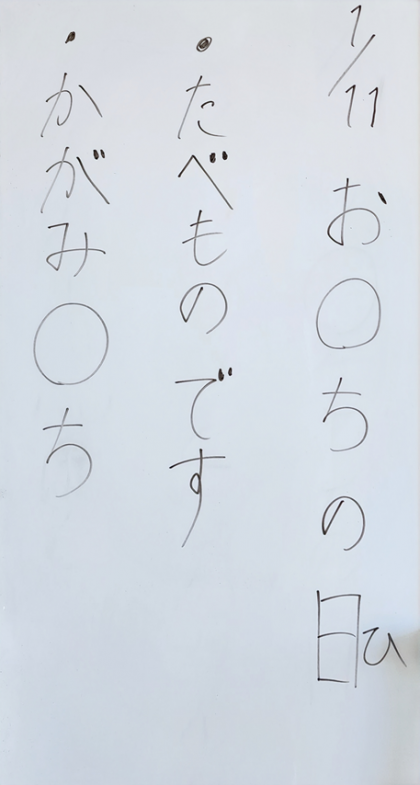 1/11 お〇ちの日ひ
・たべものです
・かがみ〇ち